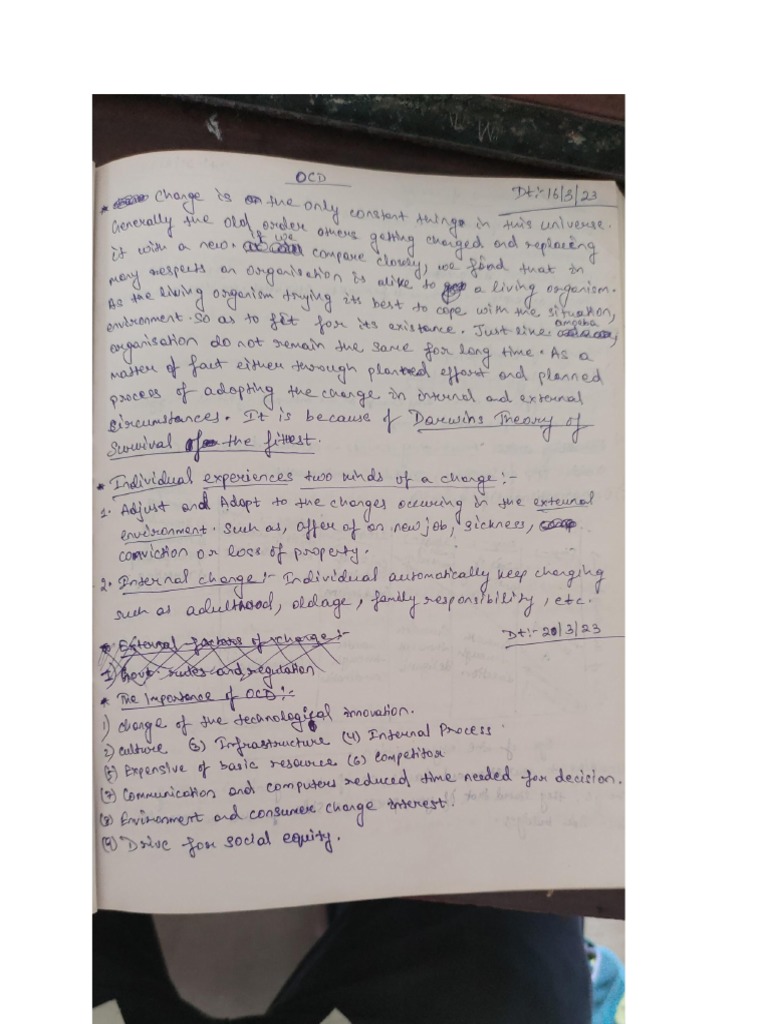 OCD
Dt:- 16/3/23
* Change is the only constant things in this universe.
Generally the old order others getting changed and replacing
it with a new. If we compare closely, we find that in
many respects an organisation is alike to a living organism.
As the living organism trying its best to cope with the situation,
environment. So as to fit for its existance. Just like amoeba,
organisation do not remain the same for long time. As a
matter of fact either through planted effort and planned
process of adopting the change in internal and external
circumstances. It is because of Darwins Theory of
Survival of the fittest.
* Individual experiences two kinds of a change:-
1. Adjust and Adopt to the changes occuring in the external
environment. Such as, offer of an new job, sickness,
conviction or loss of property.
2. Internal change:- Individual automatically keep changing
such as adulthood, oldage, family responsibility, etc.
Dt:- 20/3/23
* External factors of change:-
1) Govt. rules and regulation
* The Importance of OCD:-
1) Change of the technological innovation.
2) culture (3) Infrastructure (4) Internal Process
(5) Expensive of basic resource (6) competitor
(7) Communication and computers reduced time needed for decision.
(8) Environment and consumer change interest.
(9) Drive for social equity.